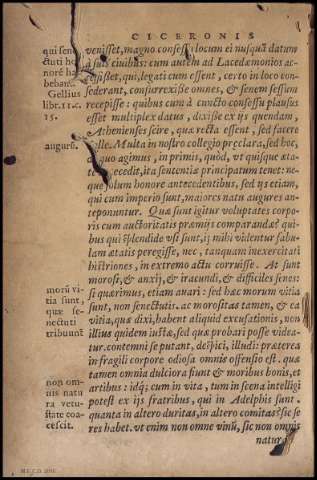 CICERONIS
qui sen
ctuti ho
norē ha
bebant
Gellius
lib.11.c.
15.
augurs.
morū vi
tia sunt,
quæ se-
nectuti
tribuunt
non om-
nis natu
ra vetu-
state coa-
cescit.
venisset, magno consessu locum ei nusquā datum
à suis ciuibus: cum autem ad Lacedæmonios ac-
cessisset, qui, legati cum essent, certo in loco con-
sederant, consurrexisse omnes, & senem sessum
recepisse: quibus cum à cuncto consessu plausus
esset multiplex datus, dixisse ex ijs quendam,
Athenienses scire, quæ recta essent, sed facere
nolle. Multa in nostro collegio præclara, sed hoc,
quo agimus, in primis, quòd, vt quisque æta-
te antecedit, ita sententiæ principatum tenet: ne-
que solum honore antecedentibus, sed ijs etiam,
qui cum imperio sunt, maiores natu augures an-
teponuntur. Quæ sunt igitur voluptates corpo-
ris cum auctoritatis præmijs comparandæ? qui-
bus qui splendide vsi sunt, ij mihi videntur fabu-
lam ætatis peregisse, nec, tanquam inexercitati
histriones, in extremo actu corruisse. At sunt
morosi, & anxij, & iracundi, & difficiles senes:
si quærimus, etiam auari: sed hæc morum vitia
sunt, non senectutis. ac morositas tamen, & ea
vitia, quæ dixi, habent aliquid excusationis, non
illius quidem iustæ, sed quæ probari posse videa-
tur. contemni se putant, despici, illudi: præterea
in fragili corpore odiosa omnis offensio est. quæ
tamen omnia dulciora fiunt & moribus bonis, et
artibus: idq; cum in vita, tum in scena intelligi
potest ex ijs fratribus, qui in Adelphis sunt.
quanta in altero duritas, in altero comitas? sic se
res habet. vt enim non omne vinū, sic non omnis
natura